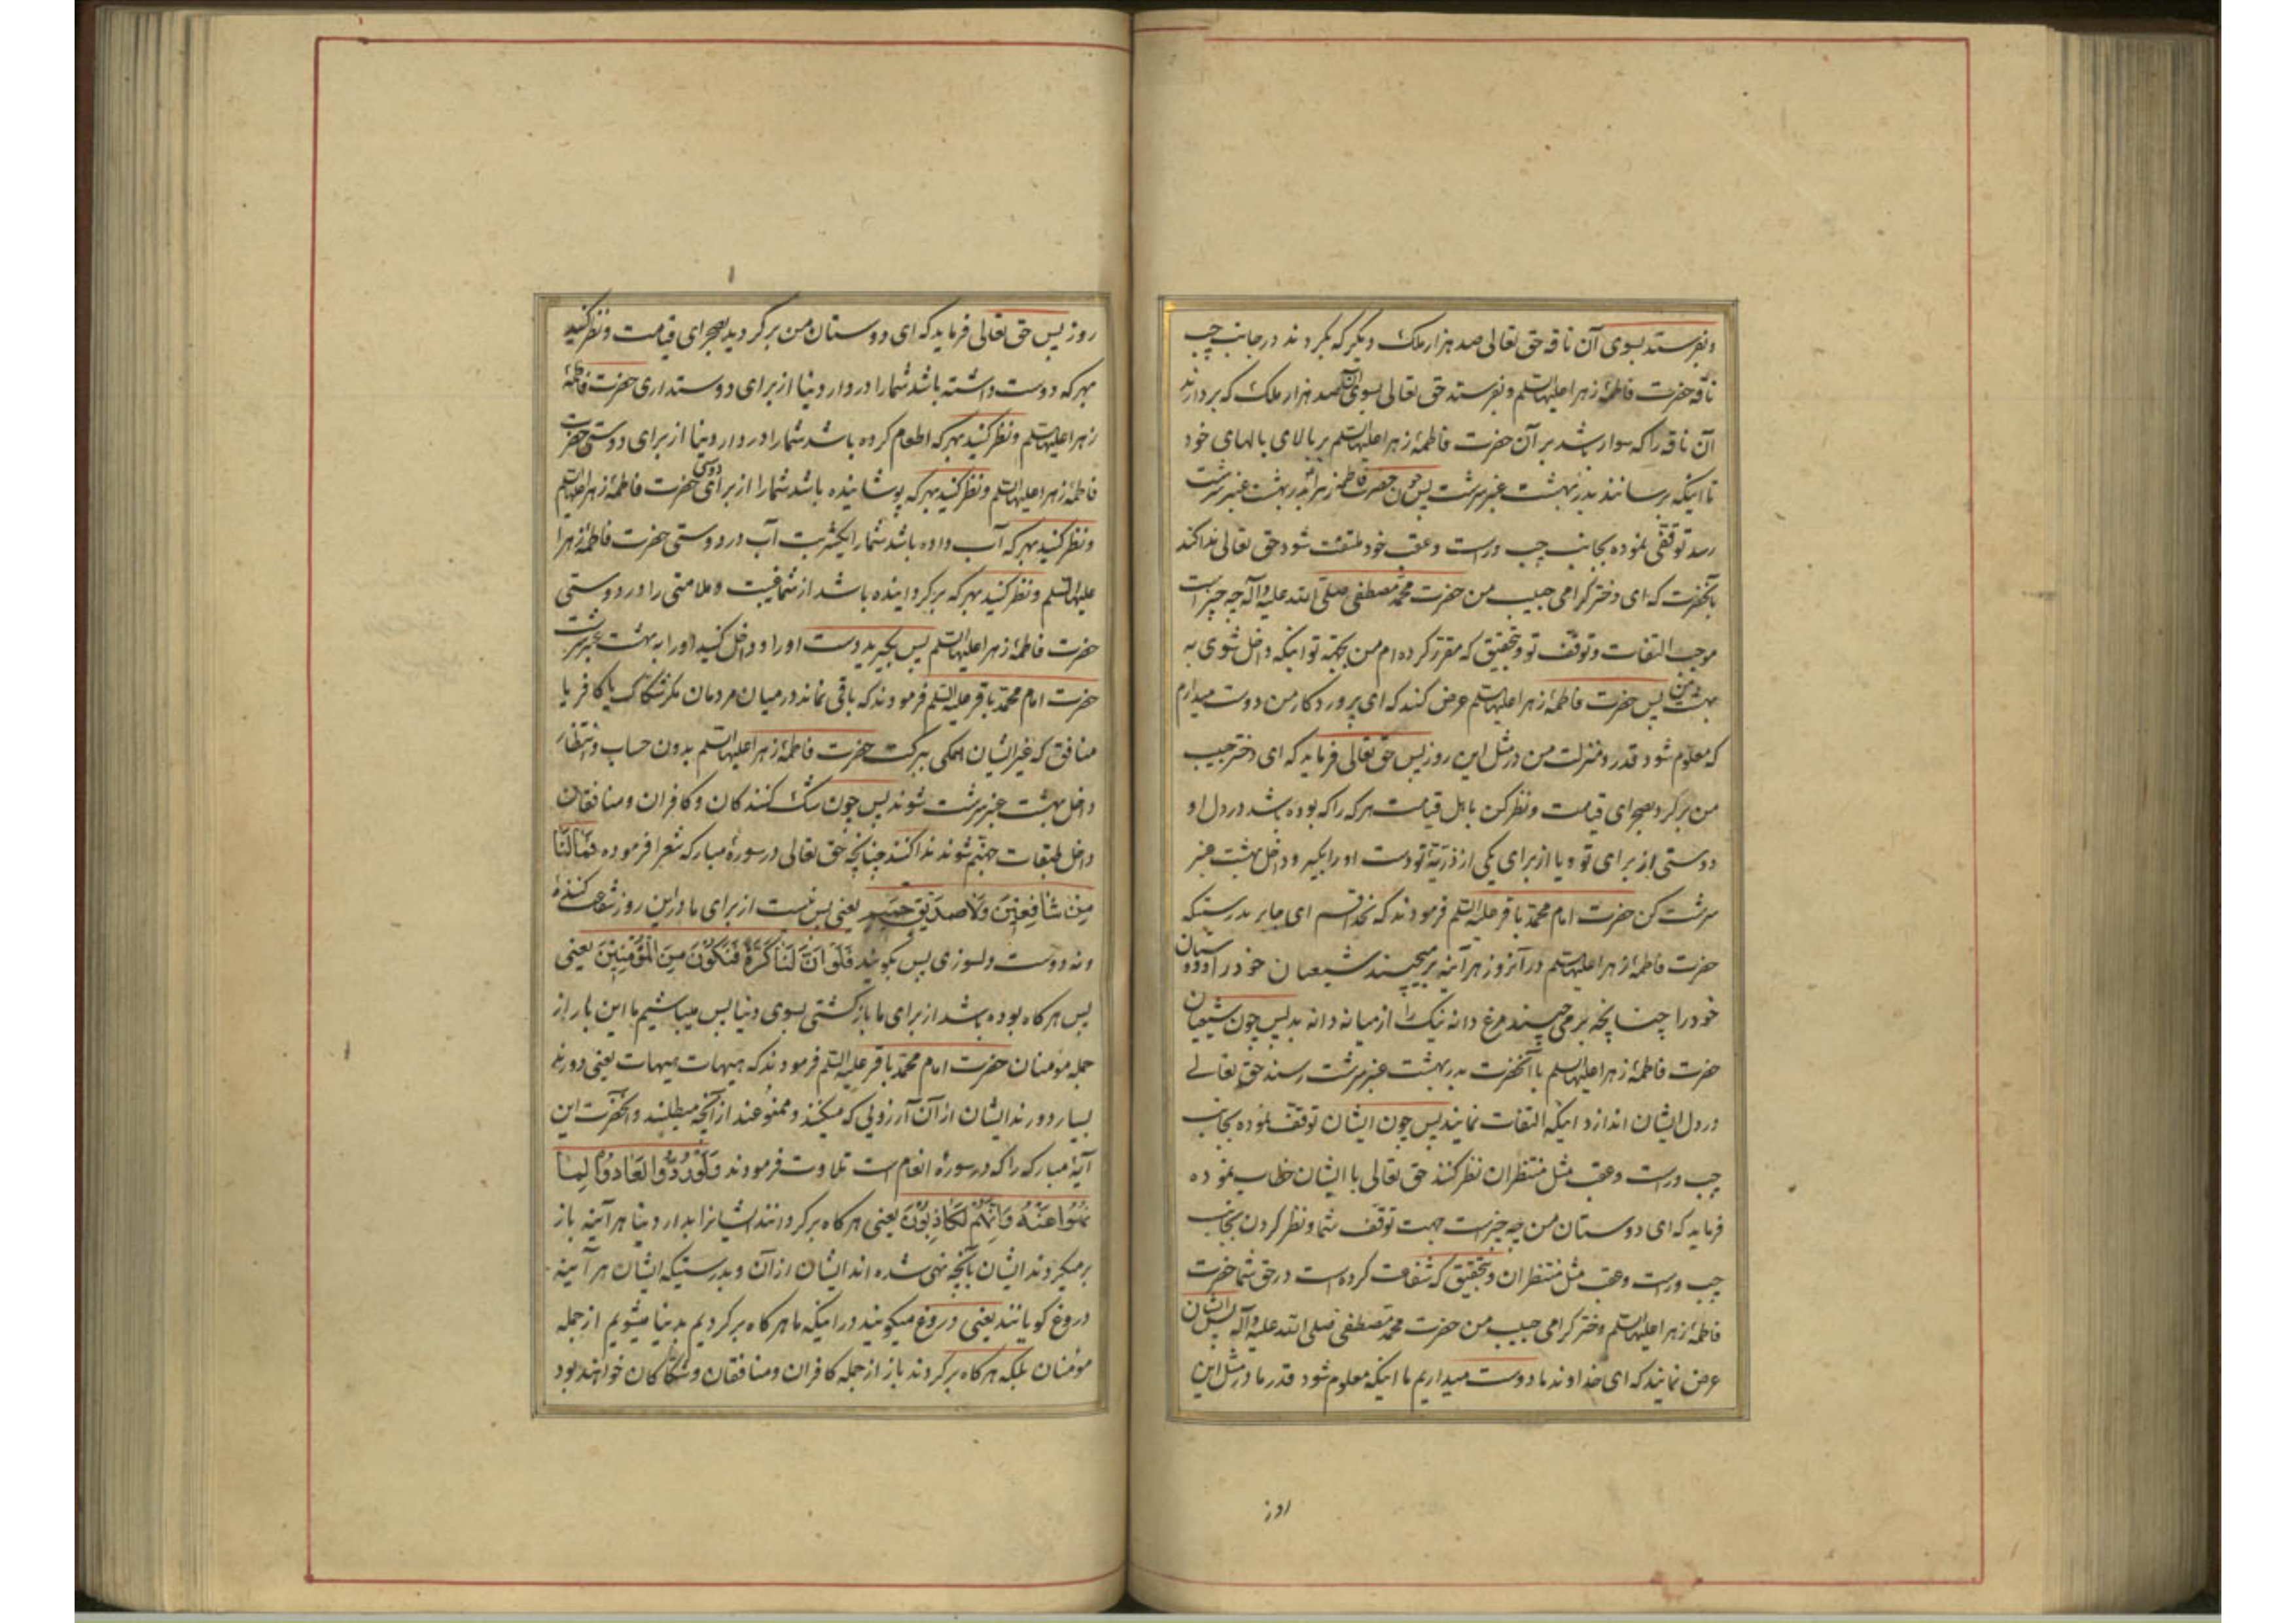 وبفرستد بسوی آن ناقه حق تعالی صد هزار ملک دیگر که بگردند در جانب چپ
ناقه حضرت فاطمهٔ زهرا علیها السلم وبفرستد حق تعالی بسوی آن صد هزار ملک که بردارند
آن ناقه را که سوار شد بر آن حضرت فاطمهٔ زهرا علیها السلم بر بالای بالهای خود
تا اینکه برسانند بدر بهشت عنبر سرشت پس چون حضرت فاطمه زهرا بدر بهشت عنبر سرشت
رسد توقفی نموده بجانب چپ وراست وعقب خود ملتفت شود حق تعالی ندا کند
بآنحضرت که ای دختر کرامی حبیب من حضرت محمد مصطفی صلی الله علیه وآله چه چیز است
موجب التفات وتوقف تو وبتحقیق که مقرر کرده ام من بجهة تو اینکه داخل شوی به
بهشت من پس حضرت فاطمهٔ زهرا علیها السلم عرض کند که ای پروردکار من دوست میدارم
که معلوم شود قدر ومنزلت من در مثل این روز پس حق تعالی فرماید که ای دختر حبیب
من برکرد بصحرای قیامت ونظر کن باهل قیامت هر که را که بوده باشد در دل او
دوستی از برای تو ویا از برای یکی از ذریهٔ تو دست اورا بکیر وداخل بهشت عنبر
سرشت کن حضرت امام محمد باقر علیه السلم فرمودند که بخدا قسم ای جابر بدرستیکه
حضرت فاطمهٔ زهرا علیها السلم در آنروز هر آینه برمیچیند شیعیان خود را ودوستان
خود را چنانچه برمی چیند مرغ دانه نیک را از میانه دانه بد پس چون شیعیان
حضرت فاطمهٔ زهرا علیها السلم با آنحضرت بدر بهشت عنبر سرشت رسند حق تعالے
در دل ایشان اندازد اینکه التفات نمایند پس چون ایشان توقف نموده بجانب
چپ وراست وعقب مثل منتظران نظر کنند حق تعالی با ایشان خطاب نموده
فرماید که ای دوستان من چه چیز است جهت توقف شما ونظر کردن بجانب
چپ وراست وعقب مثل منتظران وبتحقیق که شفاعت کرده است در حق شما حضرت
فاطمهٔ زهرا علیها السلم دختر کرامی حبیب من حضرت محمد مصطفی صلی الله علیه وآله پس ایشان
عرض نمایند که ای خداوند ما دوست میداریم ما اینکه معلوم شود قدر ما در مثل این
روز پس حق تعالی فرماید که ای دوستان من برکردید بصحرای قیامت ونظر کنید
بهر که دوست داشته باشد شما را در دار دنیا از برای دوستداری حضرت فاطمهٔ
زهرا علیها السلم ونظر کنید بهر که اطعام کرده باشد شما را در دار دنیا از برای دوستی حضرت
فاطمهٔ زهرا علیها السلم ونظر کنید بهر که پوشانیده باشد شما را از برای دوستی حضرت فاطمهٔ زهرا علیها السلم
ونظر کنید بهر که آب داده باشد شما را یکشربت آب در دوستی حضرت فاطمهٔ زهرا
علیها السلم ونظر کنید بهر که برکردانیده باشد از شما غیبت وملامتی را در دوستی
حضرت فاطمهٔ زهرا علیها السلم پس بکیرید دست اورا وداخل کنید اورا به بهشت عنبر سرشت
حضرت امام محمد باقر علیه السلم فرمودند که باقی نماند در میان مردمان مکر شکاک یا کافر یا
منافق که غیر ایشان همکی ببرکت حضرت فاطمهٔ زهرا علیها السلم بدون حساب وانتظار
داخل بهشت عنبر سرشت شوند پس چون شک کنندکان وکافران ومنافقان
داخل طبقات جهنم شوند ندا کنند چنانچه حق تعالی در سورهٔ مبارکه شعرا فرموده فَمَا لَنَا
مِنْ شَافِعِیْنَ وَلَا صَدِیْقٍ حَمِیْمٍ یعنی پس نیست از برای ما در این روز شفاعت کنندهٔ
ونه دوست دلسوزی پس بکویند فَلَوْ اَنَّ لَنَا کَرَّةً فَنَکُوْنَ مِنَ الْمُؤْمِنِیْنَ یعنی
پس هر کاه بوده باشد از برای ما بازکشتی بسوی دنیا پس میباشیم ما این بار از
جمله مؤمنان حضرت امام محمد باقر علیه السلم فرمودند که هیهات هیهات یعنی دورند
بسیار دورند ایشان از آن آرزوئی که میکنند وممنوعند از آنچه میطلبند وآنحضرت این
آیهٔ مبارکه را که در سورهٔ انعام است تلاوت فرمودند وَلَوْ رُدُّوْا لَعَادُوْا لِمَا
نُهُوْا عَنْهُ وَاِنَّهُمْ لَکَاذِبُوْنَ یعنی هر کاه برکردانند ایشانرا بدار دنیا هر آینه باز
برمیکردند ایشان بآنچه نهی شده اند ایشان از آن وبدرستیکه ایشان هر آینه
دروغ کویانند یعنی دروغ میکویند در اینکه ما هر کاه برکردیم بدنیا میشویم از جمله
مؤمنان بلکه هر کاه برکردند باز از جمله کافران ومنافقان وشکاکان خواهند بود